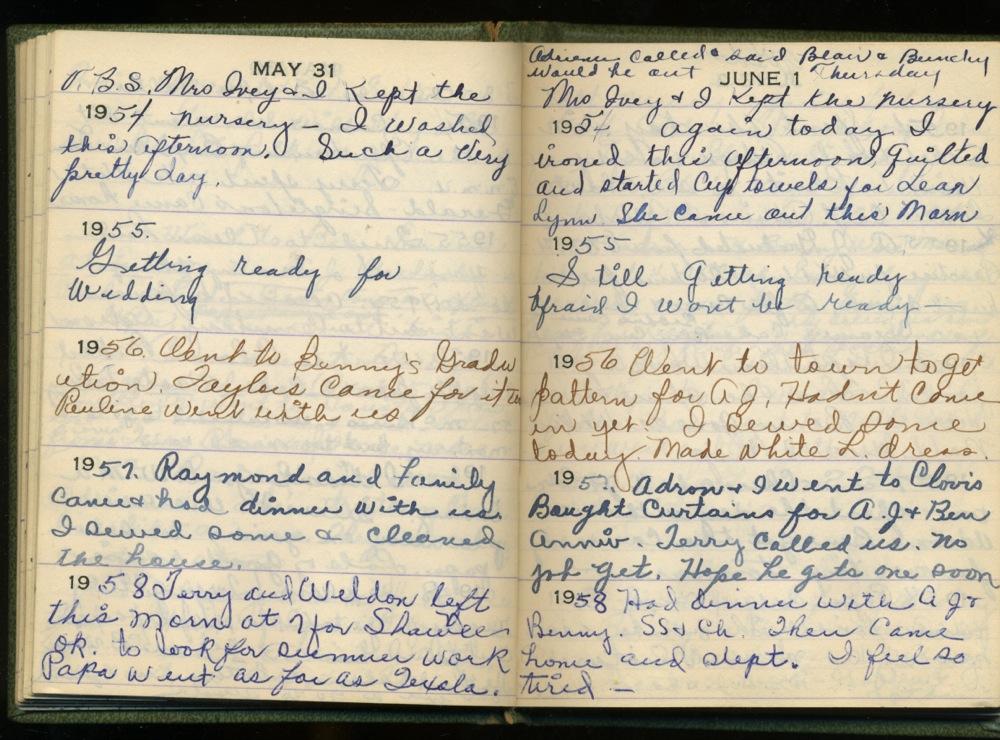 MAY 31
V.B.S. Mrs Ivey & I Kept the
1954 nursery — I washed
this afternoon. Such a Very
pretty day.
1955.
Getting ready for
Wedding
1956. Went to Bunny's Gradu
ution. Taylors Came for it
Pauline went with us
1957. Raymond and Family
Came & had dinner with us.
I sewed some & cleaned
the house.
1958 Terry and Weldon left
this morn at 7 for Shawnee
ok. to look for summer work
Papa went as far as Texola.
Adrienne called & said Blair & Bunchy
would be out Thursday
JUNE 1
Mrs Ivey & I Kept the nursery
1954. again today I
ironed this afternoon, Quilted
and started Cup towels for Lean
Lynn She came out this Morn
1955
Still Getting ready
afraid I wont be ready —
1956 Went to town to get
pattern for A J, Hadn't Come
in yet I Sewed some
today Made white L. dress.
1957. Adron & I went to Clovis
Bought Curtains for A.J & Ben
Anniv. Terry called us. no
job yet. Hope he gets one soon
1958 Had dinner with A J &
Benny. SS & Ch. Then Came
home and slept. I feel so
tired —